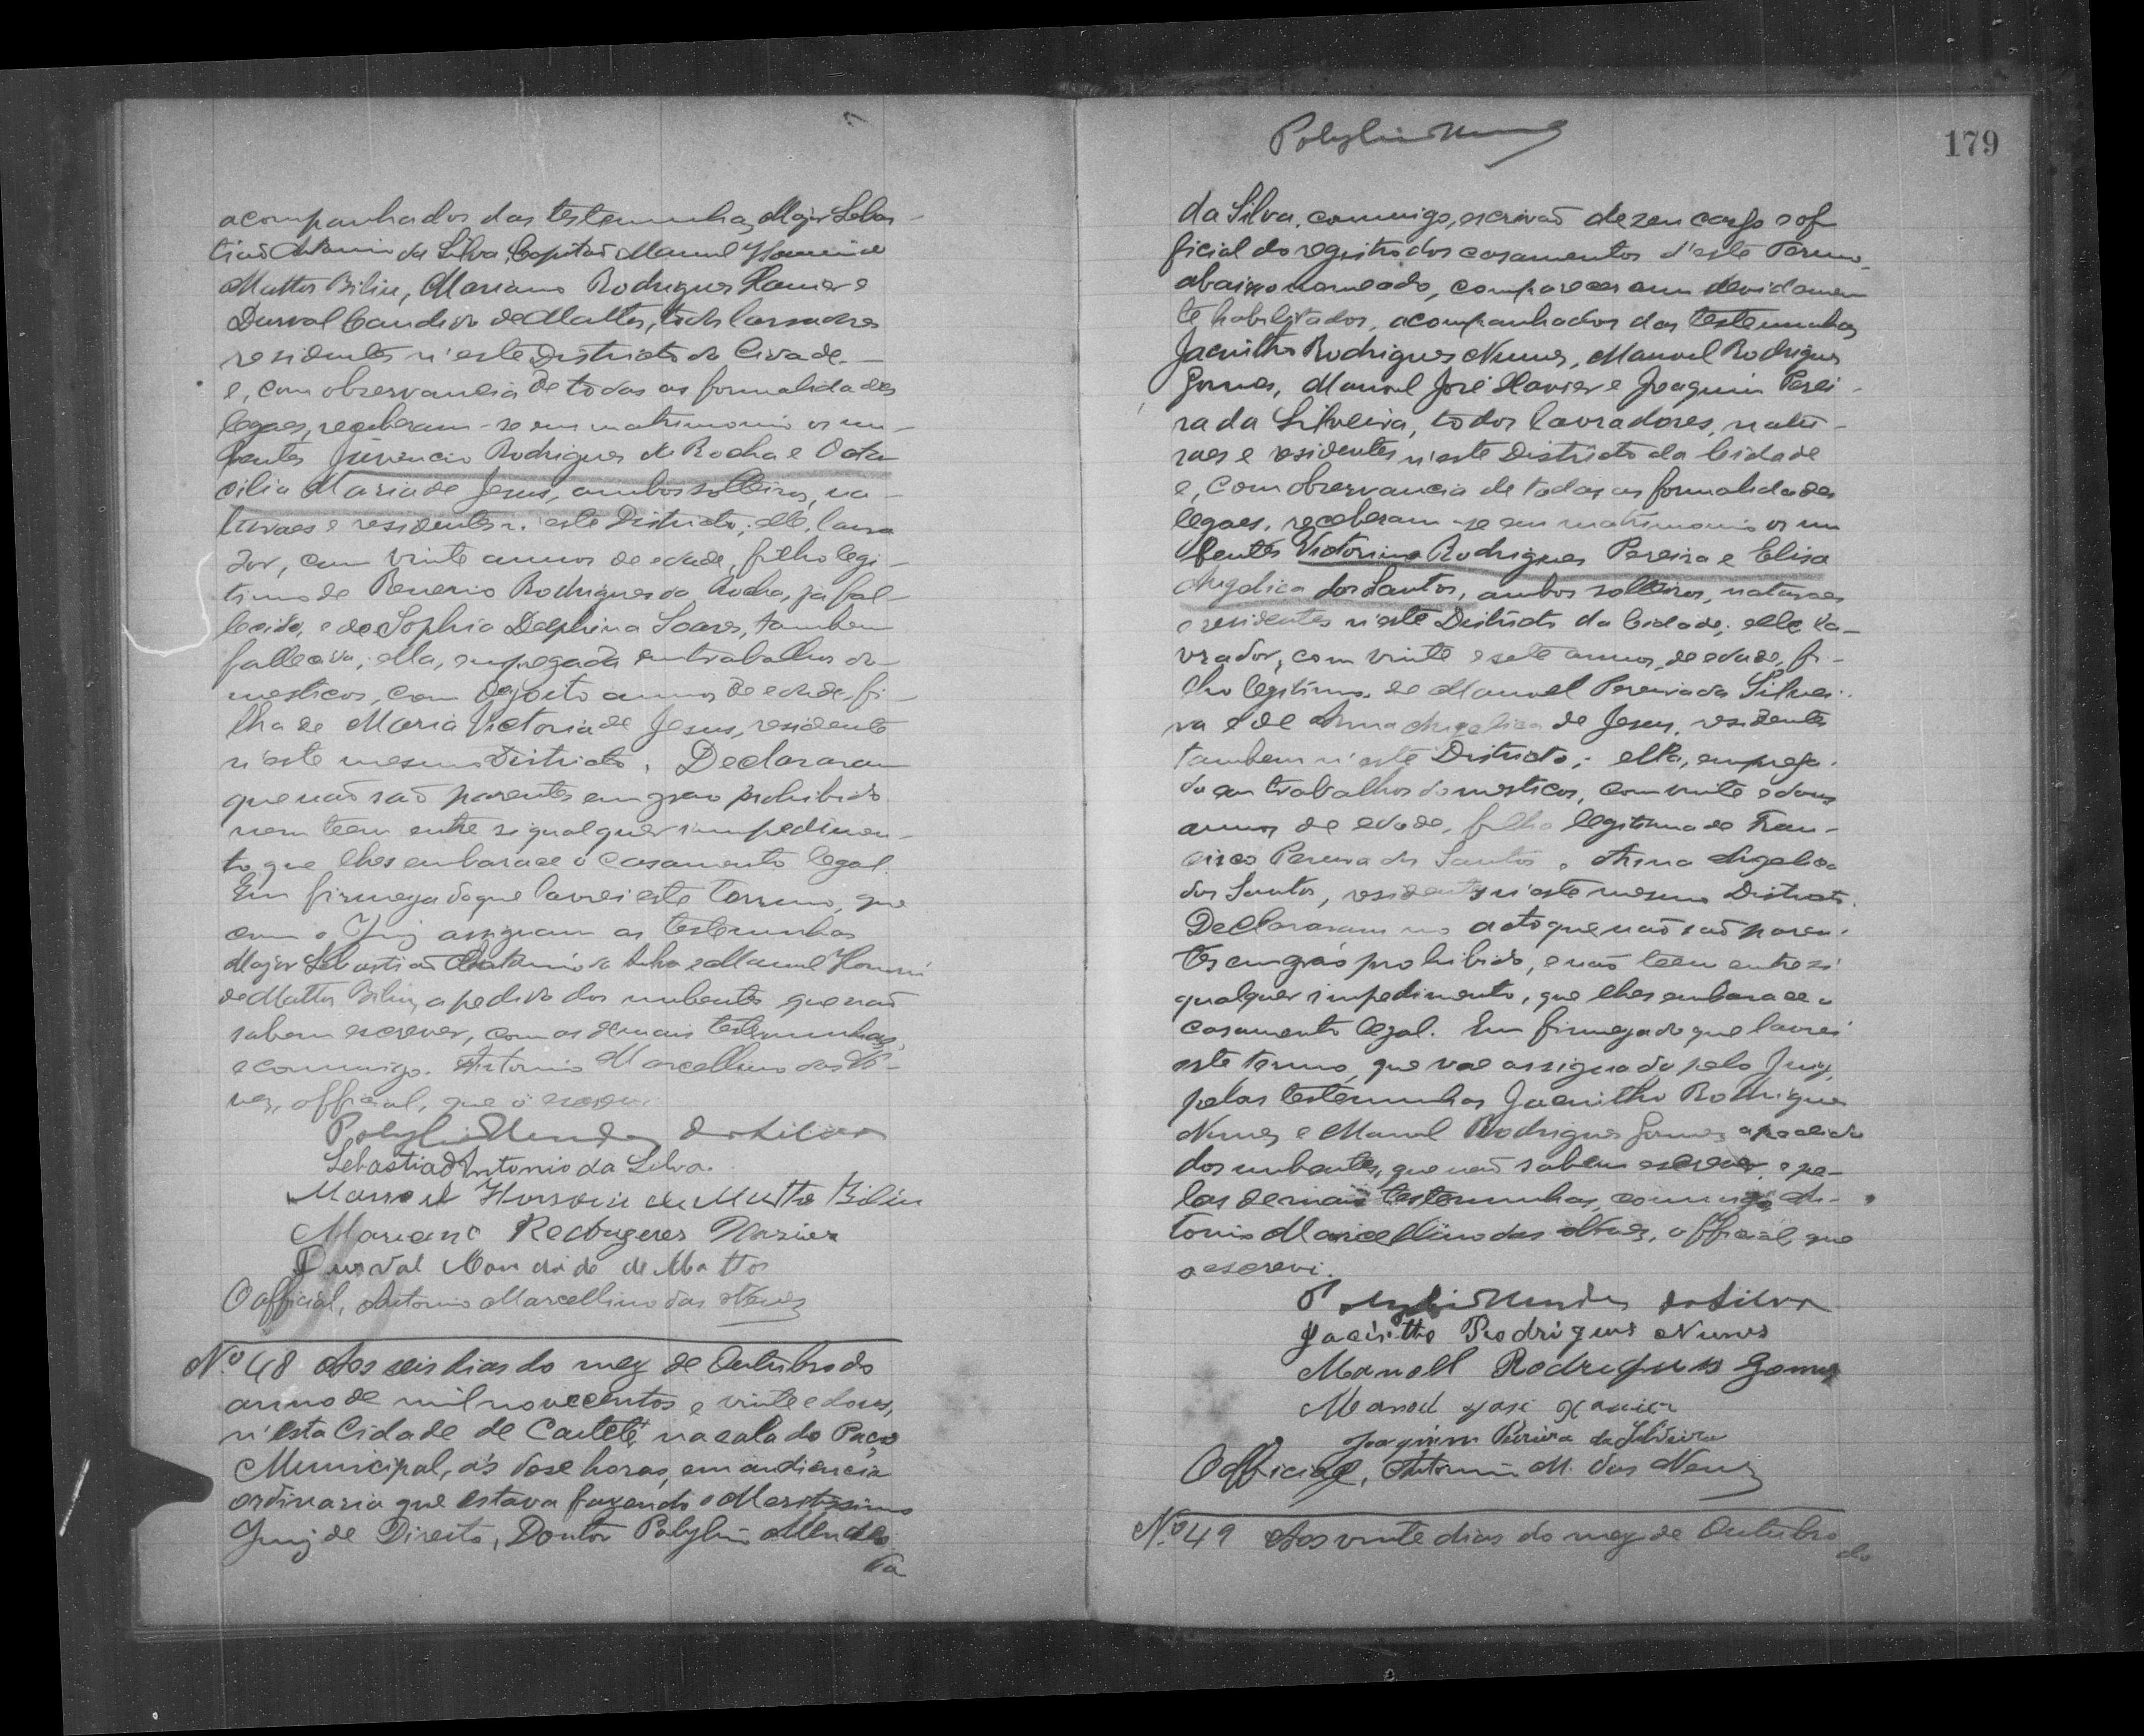 acompanhados das testemunhas, Major Sebas-
tião Antonio da Silva, Capitão Manuel Homini de
Mattos Biliu, Mariano Rodrigues Xavier e
Durval Candido de Mattos, todos lavradores
residentes n'este Districto da Cidade
e, com observancia de todas as formalidades
legaes, receberam-se em matrimonio os nu-
bentes Juvencio Rodrigues da Rocha e Octa
cilia Maria de Jesus, ambos solteiros, na-
turaes e residentes n'este Districto; elle, lavra
dor, com vinte annos de edade, filho legi-
timo de Rodrigues da Rocha, já fal-
lecido, e de Sophia Delphina Soares, tambem
fallecida; ella, empregada em trabalhos do-
mesticos, com dezoito annos de edade, fi-
lha de Maria Victoria de Jesus, residente
n'este mesmo Districto. Declararam
que não são parentes em grao prohibido
nem teem entre si qualquer impedimen-
to que lhes embarace o casamento legal.
Em firmeza do que lavrei este termo, que
com o Juiz assignam as testemunhas
Major Sebastião Antonio da Silva e Manuel Homini
de Mattos Biliu, a pedido dos nubentes que não
sabem escrever, com as demais testemunhas,
e commigo. Antonio Marcellino das Ne-
ves, official, que o escrevi.
Polybio Mendes da Silva
Sebastião Antonio da Silva.
Manoel de Mattos Biliu
Mariano Rodrigues Xavier
Durval Candido de Mattos
O official, Antonio Marcellino das Neves
Nº 48 Aos seis dias do mez de Outubro do
anno de mil novecentos e vinte e dous,
n'esta Cidade de Caeteté, na sala do Paço
Municipal, ás dose horas, em audiencia
ordinaria que estava fazendo o Meritissimo
Juiz de Direito, Doutor Polybio Mendes
da
Polybio Mendes
179
da Silva, commigo, escrivão de seu cargo e of
ficial do registro dos casamentos d'este Termo,
abaixo nomeado, compareceram devidamen
te habilitados, acompanhados das testemunhas
Jacintho Rodrigues Nunes, Manoel Rodrigues
Gomes, Manoel José Xavier e Joaquim Perei-
ra da Silveira, todos lavradores, natu-
raes e residentes n'este Districto da Cidade
e, com observancia de todas as formalidades
legaes, receberam-se em matrimonio os nu
bentes Victorino Rodrigues Pereira e Elisa
Angelica dos Santos, ambos solteiros, naturaes
e residentes n'este Districto da Cidade; elle, la-
vrador, com vinte e sete annos de edade, fi-
lho legitimo de Manoel Pereira da Silvei-
ra e de Anna Angelica de Jesus, residentes
tambem n'este Districto; ella, emprega-
da em trabalhos domesticos, com vinte e dous
annos de edade, filha legitima de Fran-
cisco Pereira dos Santos e Anna Angelica
dos Santos, residentes n'este mesmo Districto.
Declararam no acto que não são paren-
tes em gráo prohibido, e não teem entre si
qualquer impedimento, que lhes embarace o
casamento legal. Em firmeza do que lavrei
este termo, que vae assignado pelo Juiz,
pelas testemunhas Jacintho Rodrigues
Nunes e Manoel Rodrigues Gomes a pedido
dos nubentes, que não sabem escrever, e pe-
las demais testemunhas, commigo, An-
tonio Marcellino das Neves, official que
o escrevi.
Polybio Mendes da Silva
Jacintho Rodrigues Nunes
Manoel Rodrigues Gomes
Manoel José Xavier
Joaquim Pereira da Silveira
O official, Antonio M. das Neves
Nº 49 Aos vinte dias do mez de Outubro
do